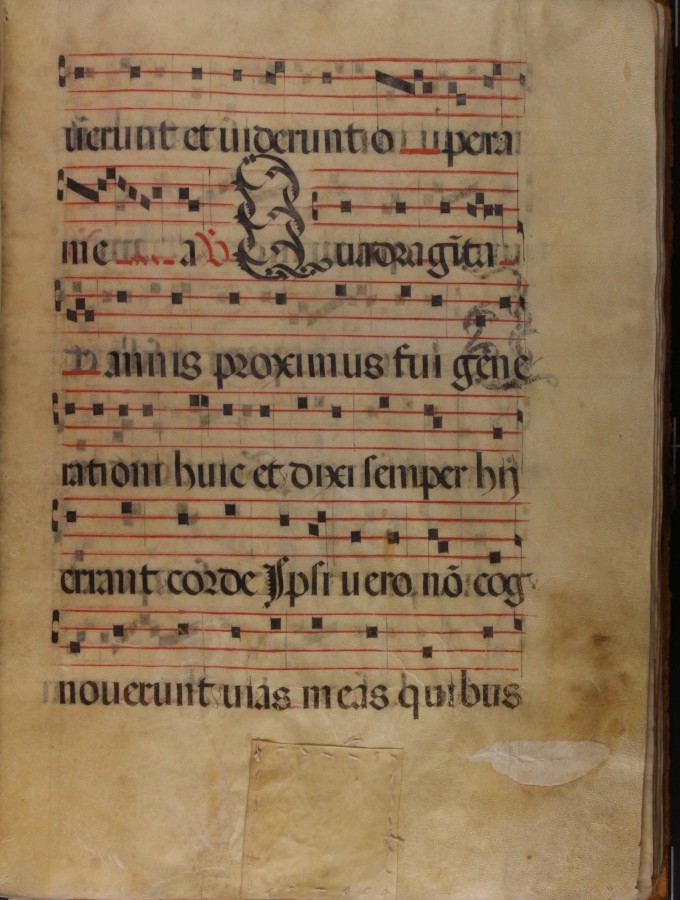 uerunt et uiderunt o pera
me a ℣ Quadragīta
annis proximus fui gene
rationi huic et dixi semper hij
errant corde Ipsi uero nō cog
nouerunt uias meas quibus